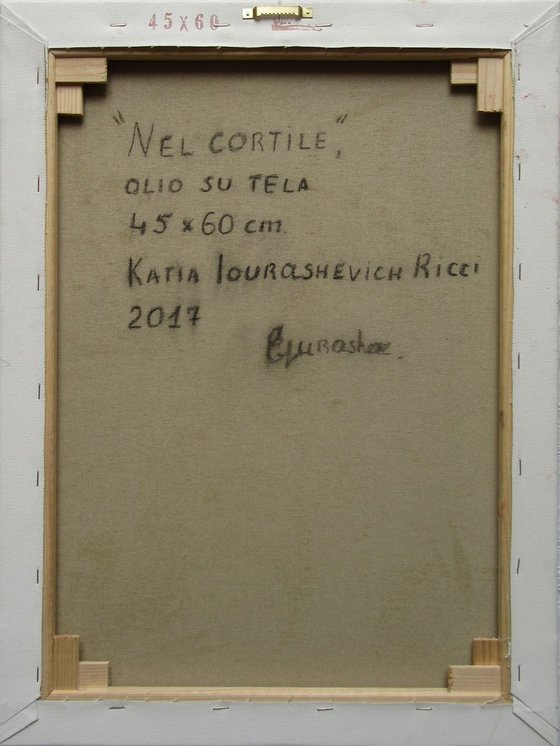 45x60
"NEL CORTILE",
OLIO SU TELA
45 x 60 cm
KATIA IOURASHEVICH RICCI
2017